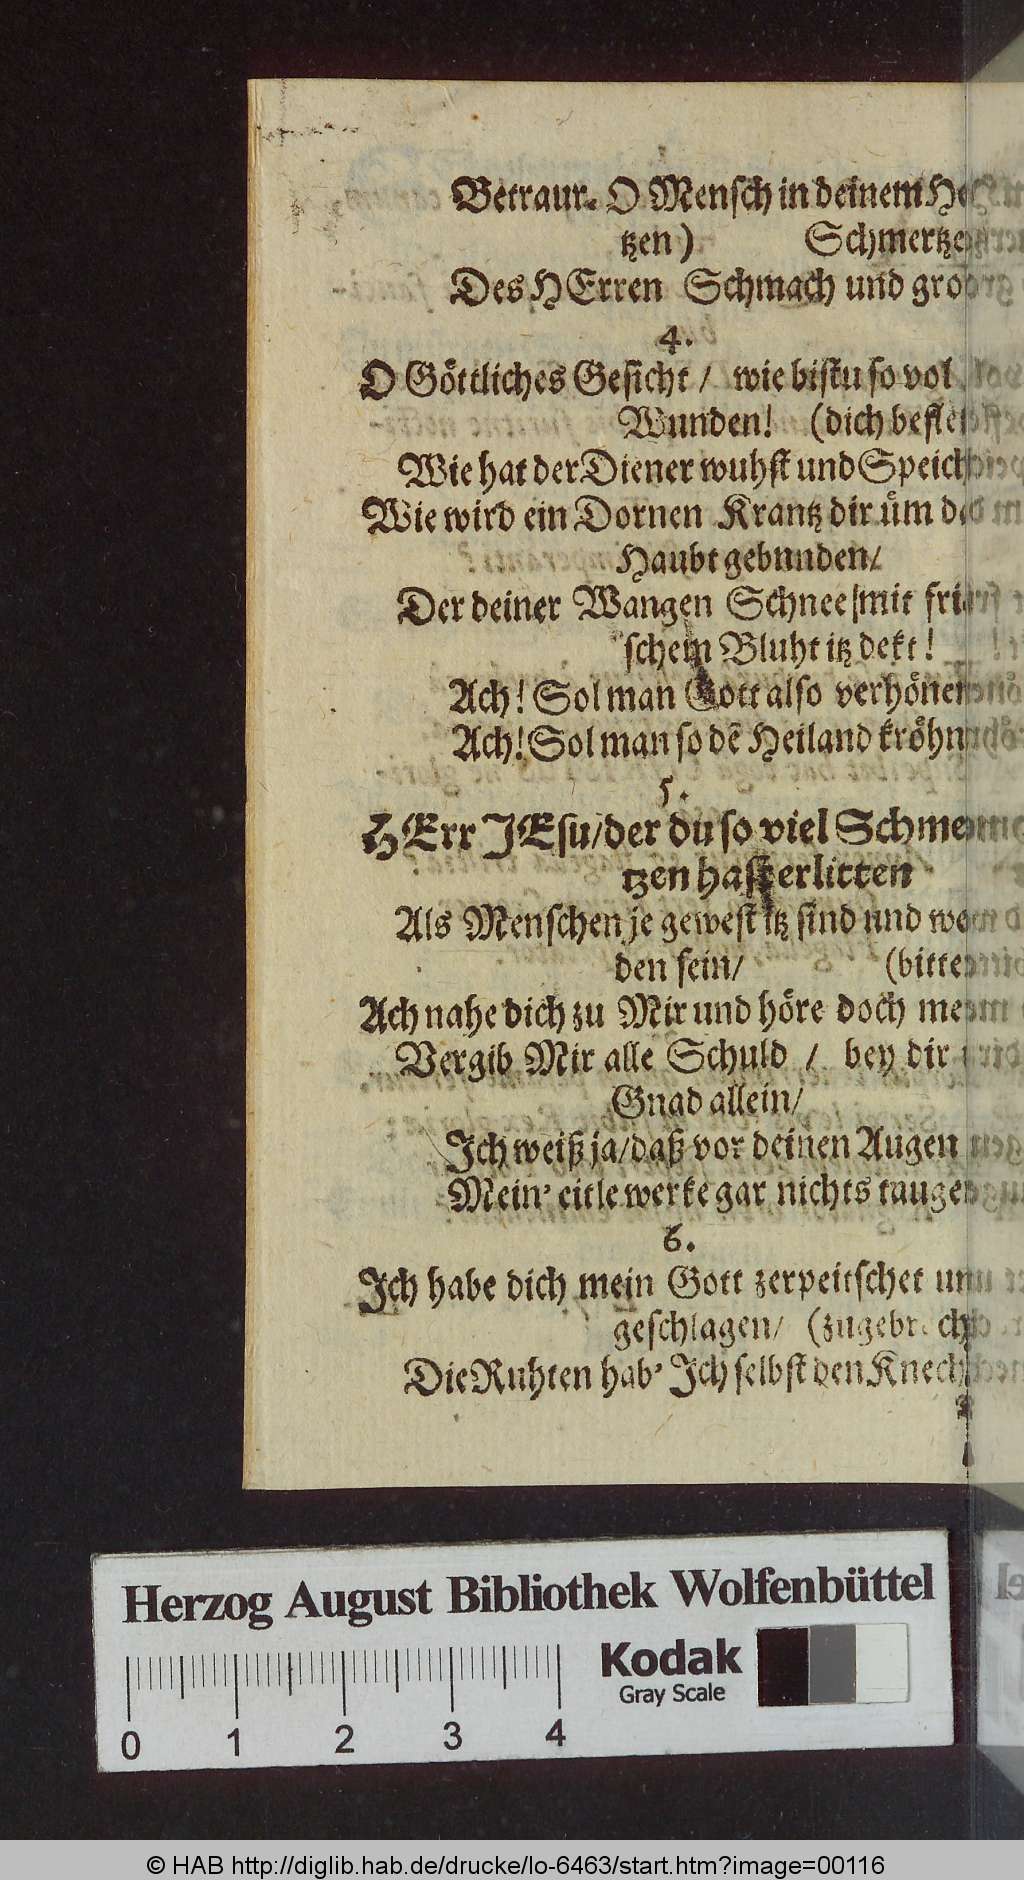 Betraur. O Mensch in deinem Her
tzen) Schmertze
Des HErren Schmach und gro
4.
O Göttliches Gesicht / wie bistu so vol
Wunden! (dich befle
Wie hat der Diener wuhst und Speich
Wie wird ein Dornen Krantz dir üm d
Haubt gebunden/
Der deiner Wangen Schnee/mit fri
schem Bluht itz dekt!
Ach! Sol man Gott also verhönen
Ach! Sol man so dẽ Heiland kröhn
5.
HErr JEsu/der du so viel Schme
tzen hast erlitten
Als Menschen je gewest itz sind und we
den sein/ (bitte
Ach nahe dich zu Mir und höre doch me
Vergib Mir alle Schuld / bey dir
Gnad allein/
Ich weiß ja/daß vor deinen Augen
Mein' eitle werke gar nichts tauge
6.
Ich habe dich mein Gott zerpeitschet un
geschlagen/ (zugebr
Die Ruhten hab' Ich selbst den Knech
Herzog August Bibliothek Wolfenbüttel
Kodak
Gray Scale
0 1 2 3 4
© HAB http://diglib.hab.de/drucke/lo-6463/start.htm?image=00116